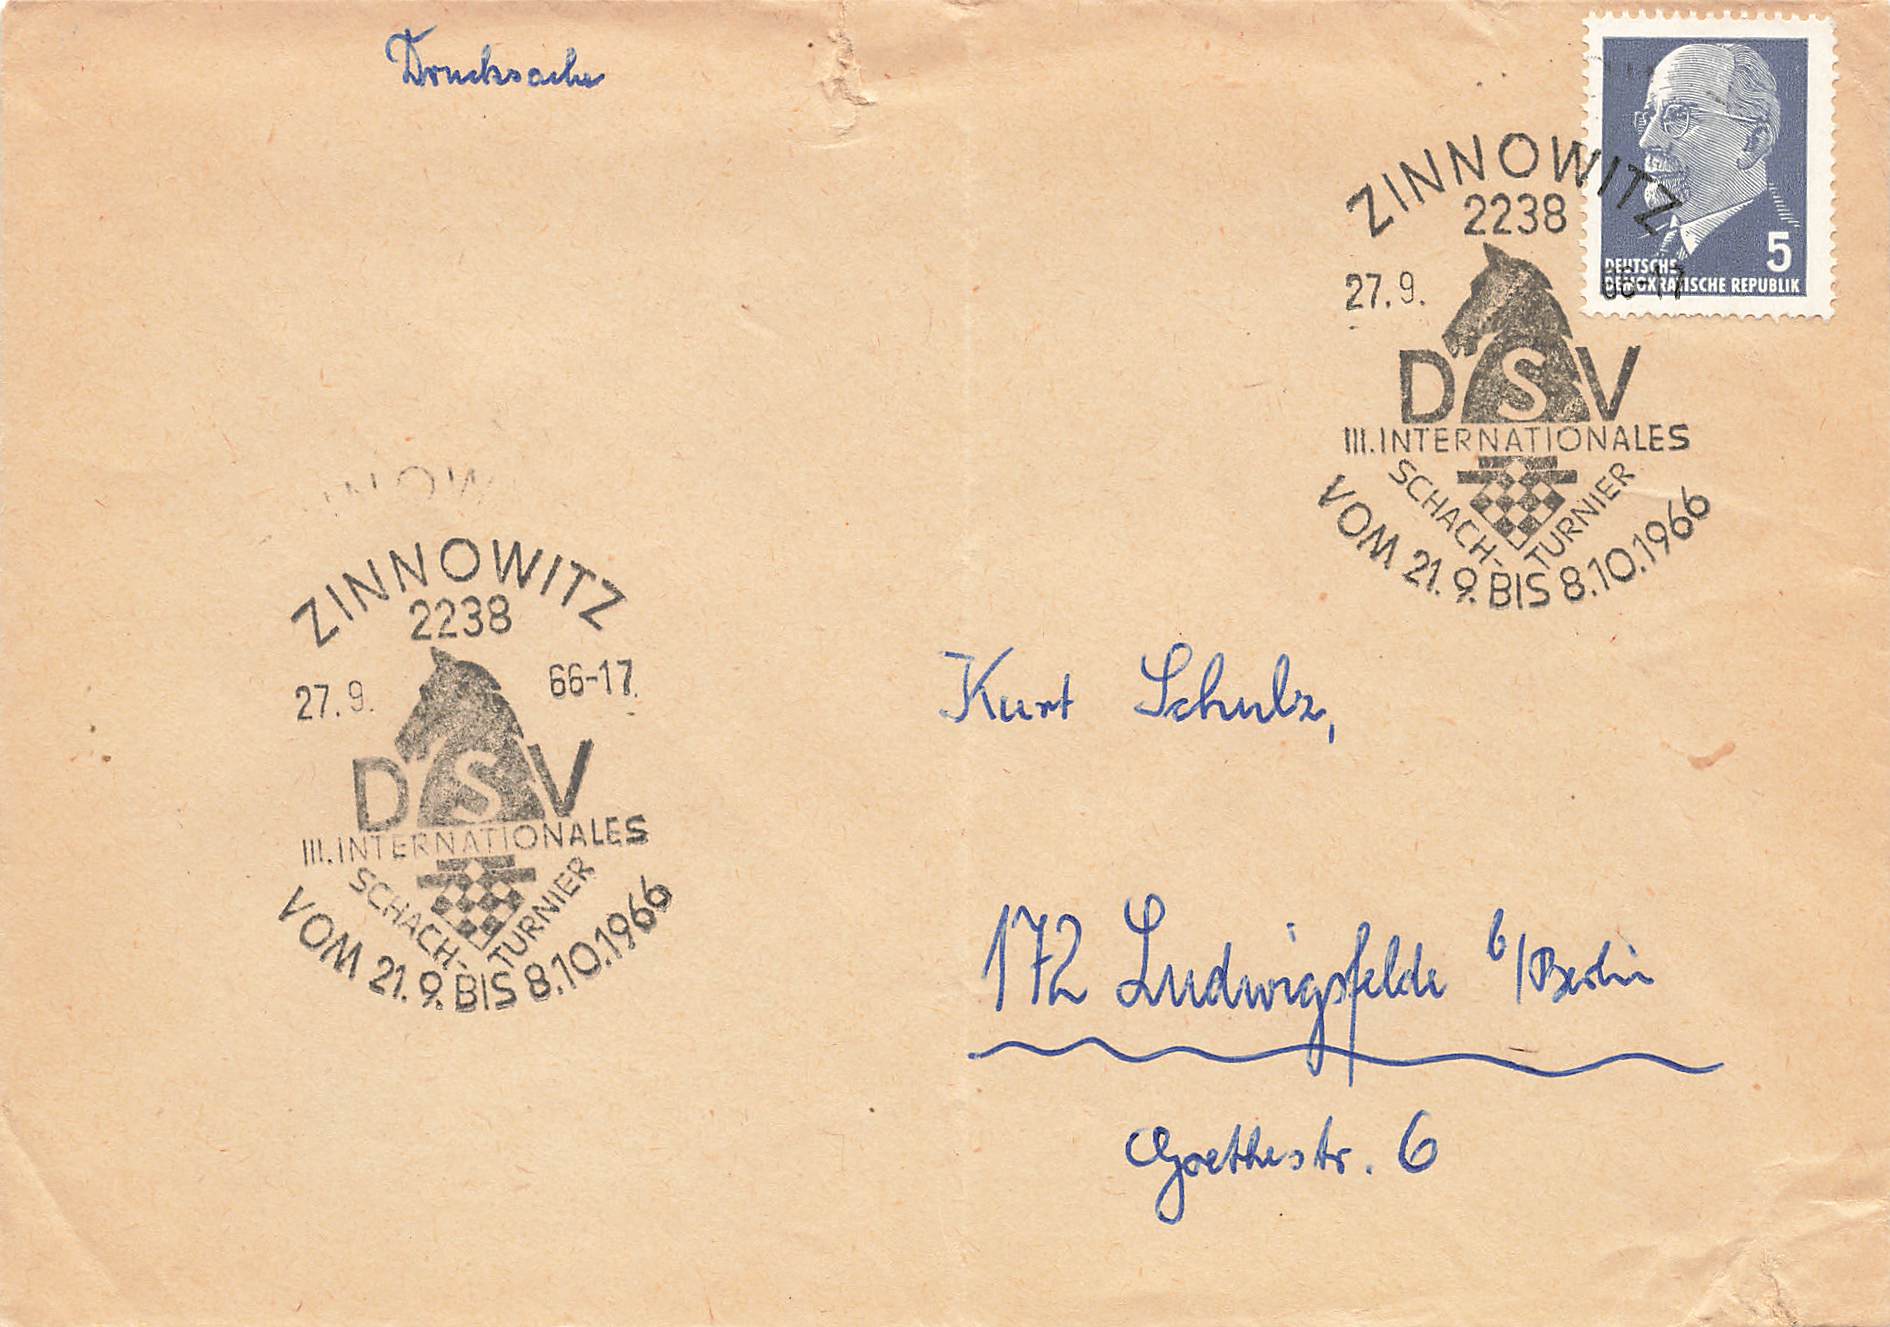 Drucksache
5
DEUTSCHE
DEMOKRATISCHE REPUBLIK
ZINNOWITZ
2238
27.9. 66-17
DSV
III. INTERNATIONALES
SCHACH-TURNIER
VOM 21.9. BIS 8.10.1966
ZINNOWITZ
2238
27.9. 66-17
DSV
III. INTERNATIONALES
SCHACH-TURNIER
VOM 21.9. BIS 8.10.1966
Kurt Schulz,
172 Ludwigsfelde b/Berlin
Goethestr. 6